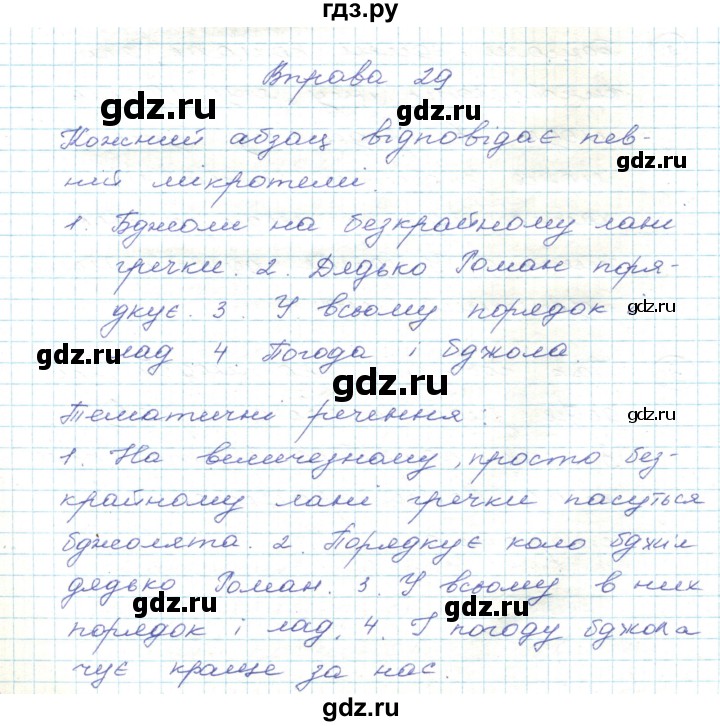 гдз.ру
Вправа 29
gdz.ru
gdz.ru
Кожний абзац відповідає пев-
ній мікротемі.
1. Бджоли на безкрайному лані
гречки. 2. Дядько Роман поря-
дкує. 3. У всьому порядок і
gdz.ru
лад. 4. Погода і бджола.
gdz.ru
gdz.ru
Тематичні речення:
gdz.ru
1. На величезному, просто без-
крайному лані гречки пасуться
бджолята. 2. Порядкує коло бджіл
дядько Роман. 3. У всьому в них
gdz.ru
gdz.ru
порядок і лад. 4. І погоду бджола
чує краще за нас.
gdz.ru